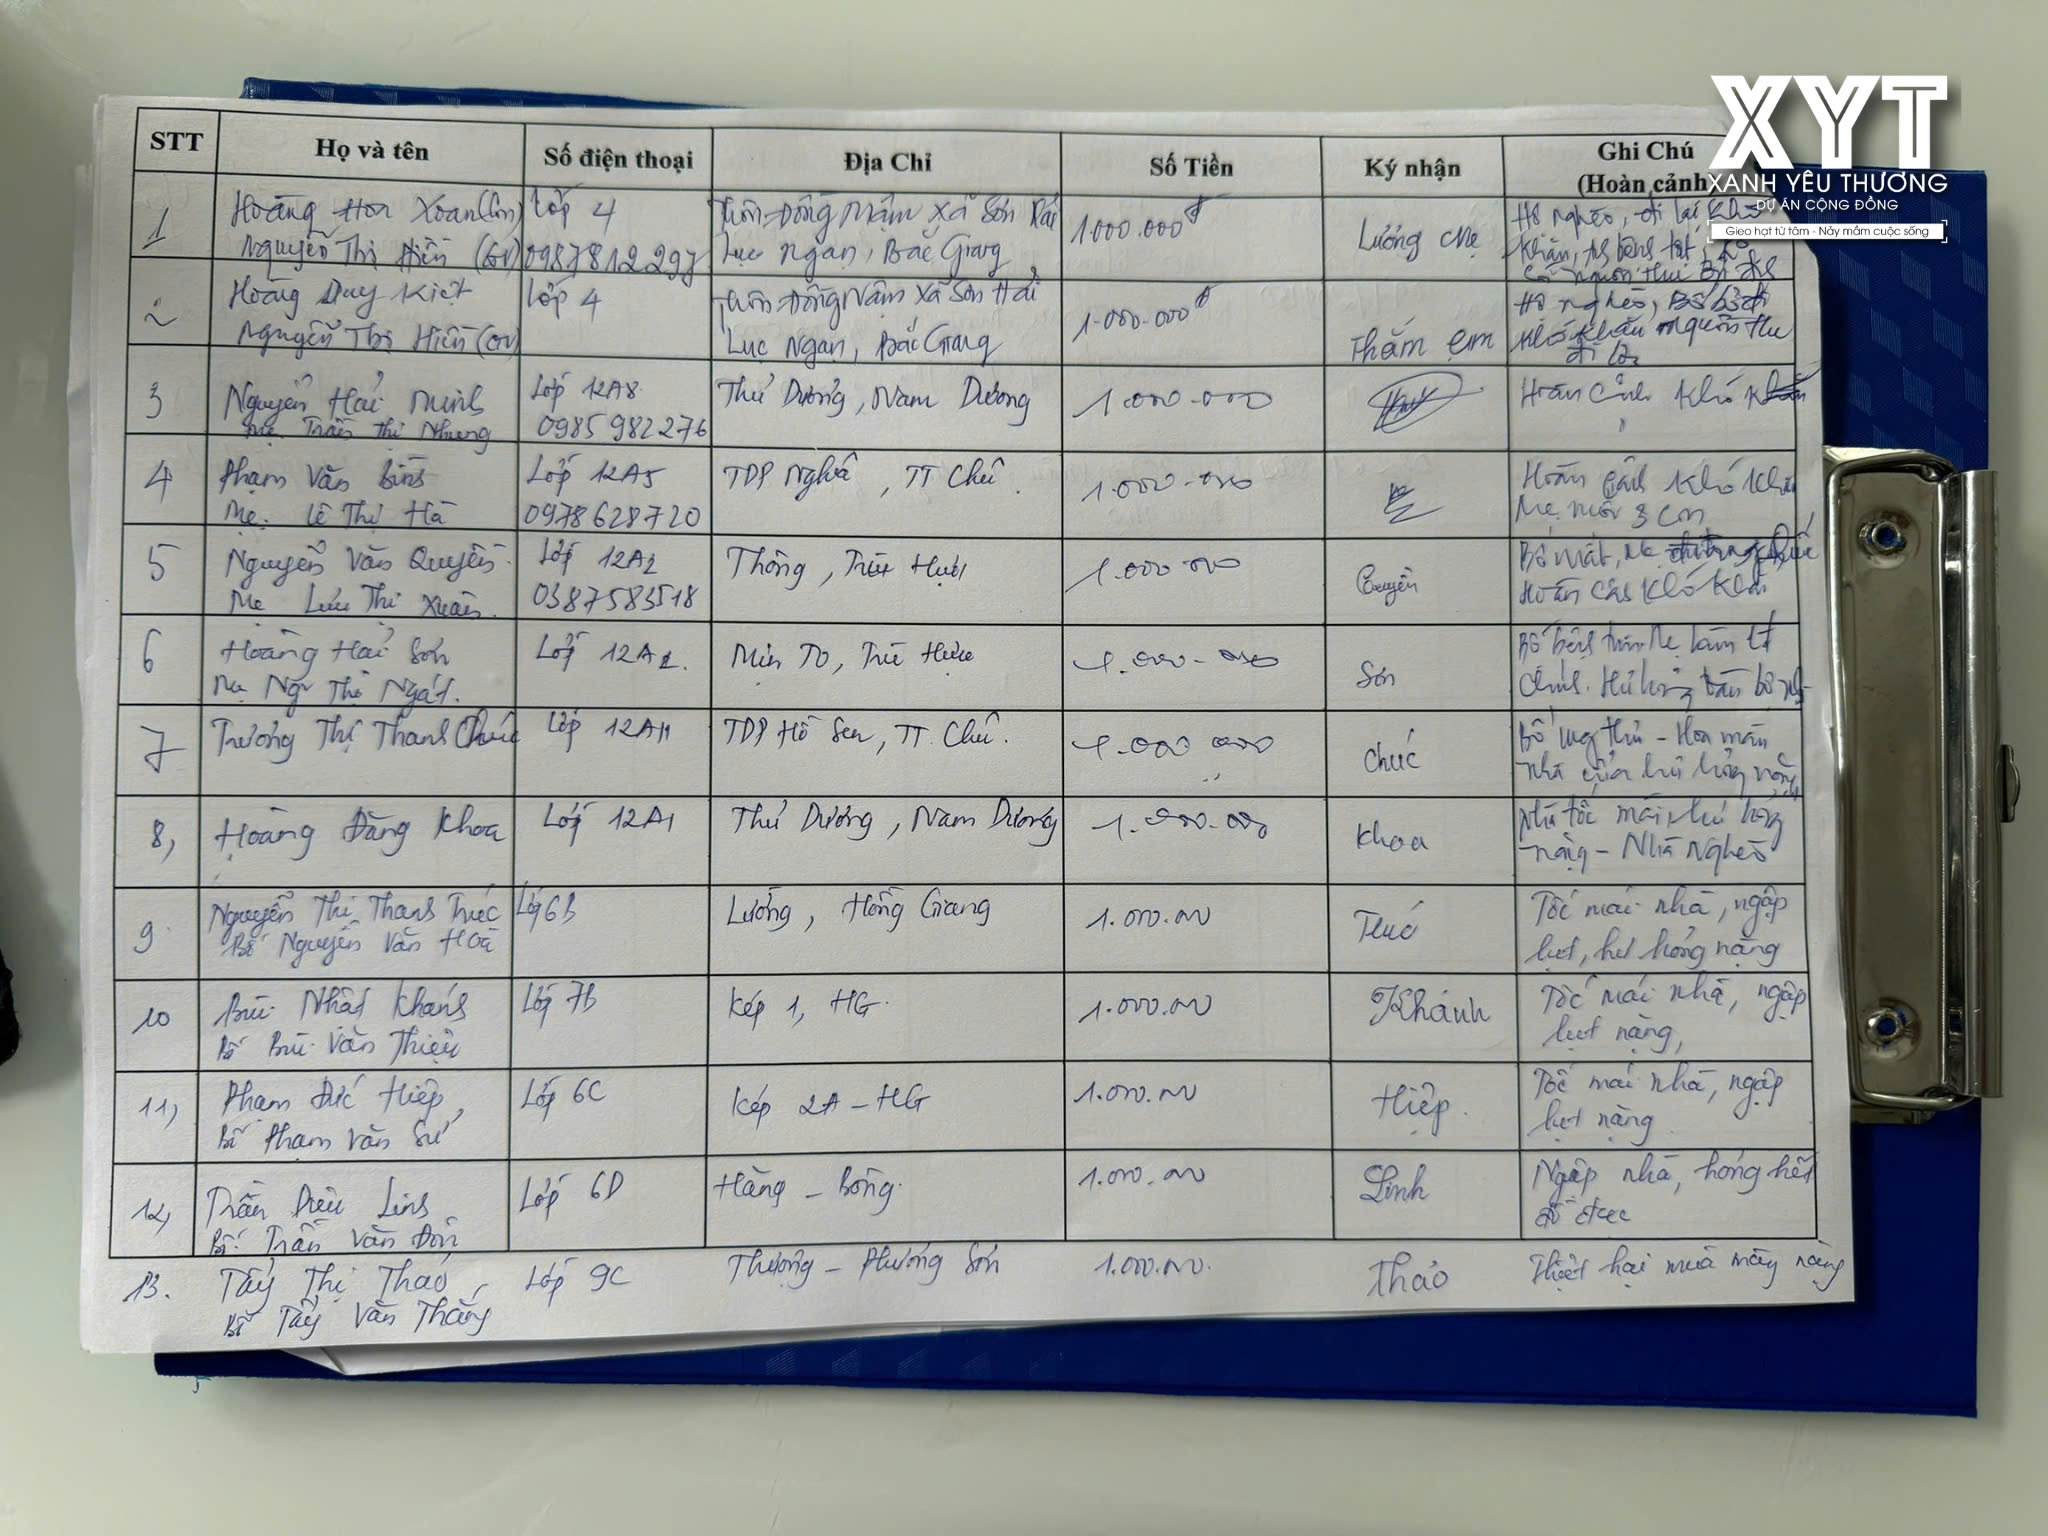 STT Họ và tên Số điện thoại Địa Chỉ Số Tiền Ký nhận Ghi Chú
(Hoàn cảnh)
XYT
XANH YÊU THƯƠNG
DỰ ÁN CỘNG ĐỒNG
Gieo hạt từ tâm - Nảy mầm cuộc sống
1 Hoàng Hoa Xoan Lớp 4 Thôn Đồng Mậm Xã Sơn Hải 1.000.000đ Lương Mẹ Hộ nghèo, đi lại khó
Nguyễn Thị Hiền (GV) 0987812297 Lục Ngạn, Bắc Giang khăn
2 Hoàng Duy Kiệt Lớp 4 Thôn Đồng Nậm Xã Sơn Hải 1.000.000đ Thắm em Hộ nghèo,
Nguyễn Thị Hiền (GV) Lục Ngạn, Bắc Giang khó khăn nguồn thu
3 Nguyễn Hải Minh Lớp 12A8 Thủ Dương, Nam Dương 1.000.000 Hoàn cảnh khó khăn
Mẹ Trần Thị Nhung 0985982276
4 Phạm Văn Bình Lớp 12A5 TDP Nghĩa, TT Chũ. 1.000.000 Hoàn cảnh khó khăn
Mẹ. Lê Thị Hà 0978628720 Mẹ nuôi 3 con
5 Nguyễn Văn Quyền Lớp 12A2 Thông, Trù Hựu 1.000.000 Quyền Bố mất, Mẹ
Mẹ Lưu Thị Xuân 0387583518 Hoàn cảnh khó khăn
6 Hoàng Hải Sơn Lớp 12A2. Mịn To, Trù Hựu 1.000.000 Sơn Bố bệnh Mẹ làm
Mẹ Ngv Thị Ngát.
7 Trương Thị Thanh Chúc Lớp 12A11 TDP Hồ Sen, TT. Chũ. 1.000.000 Chúc Bố ung thư - Hoa màu
nhà cửa hư hỏng nặng
8, Hoàng Đăng Khoa Lớp 12A1 Thủ Dương, Nam Dương 1.000.000 Khoa Nhà tốc mái, hư hỏng
nặng - Nhà Nghèo
9 Nguyễn Thị Thanh Trúc Lớp 6B Lường, Hồng Giang 1.000.000 Tốc mái nhà, ngập
Bố Nguyễn Văn Hoà lụt, hư hỏng nặng
10 Bùi Nhật Khánh Lớp 7B Kép 1, HG. 1.000.000 Khánh Tốc mái nhà, ngập
Bố Bùi Văn Thiệu lụt nặng,
11, Phạm Đức Hiệp, Lớp 6C Kép 2A - HG 1.000.000 Hiệp. Tốc mái nhà, ngập
Bố Phạm Văn Sử lụt nặng.
12, Trần Diệu Linh Lớp 6D Hàng - Bông. 1.000.000 Linh Ngập nhà, hỏng hết
Bố Trần Văn Đôn
13. Tẩy Thị Thảo Lớp 9C Thượng - Phương Sơn 1.000.000. Thảo Thiệt hại mùa màng nặng
Bố Tẩy Văn Thắng